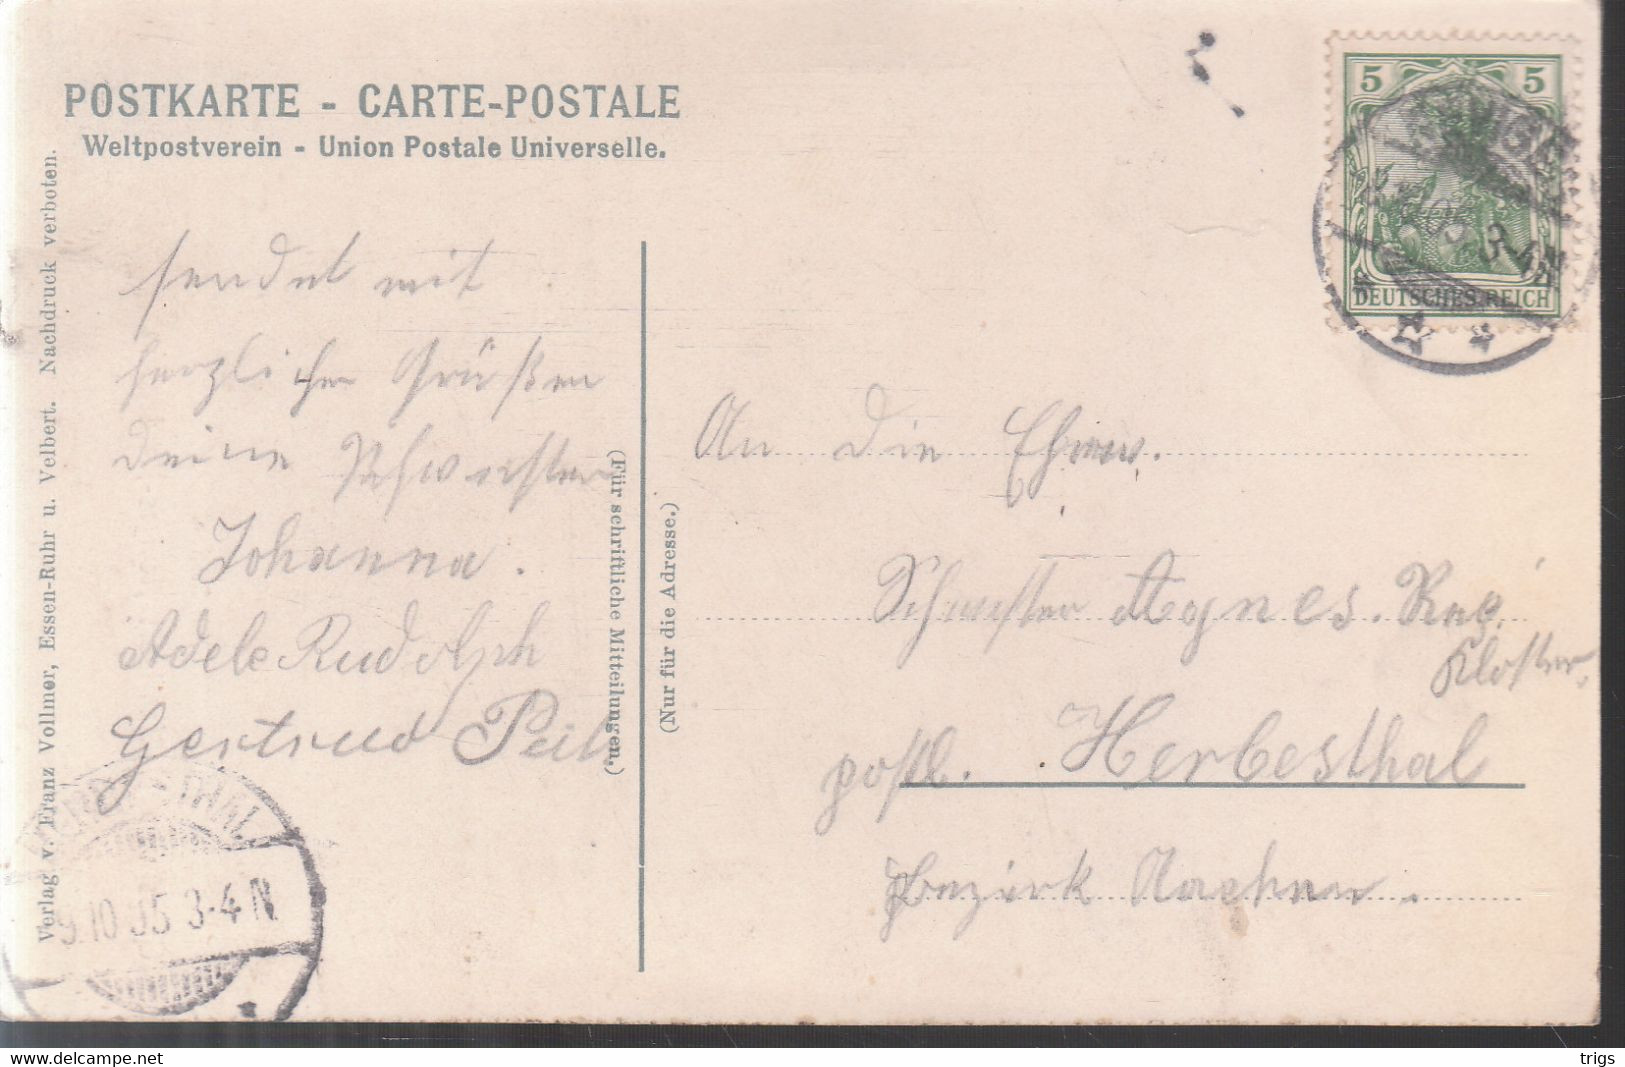 POSTKARTE - CARTE-POSTALE
Weltpostverein - Union Postale Universelle.
Verlag v. Franz Vollmer, Essen-Ruhr u. Velbert. Nachdruck verboten.
sendet mit
herzlichen Grüßen
deine Schwester
Johanna.
Adele Rudolph
Gertrud
(Für schriftliche Mitteilungen.)
(Nur für die Adresse.)
5 5
DEUTSCHES REICH
3-4N
An die Ehrw.
Schwester Agnes.
Kloster.
postl. Herbesthal
Bezirk Aachen.
9.10.05 3-4N
delcampe.net
trigs